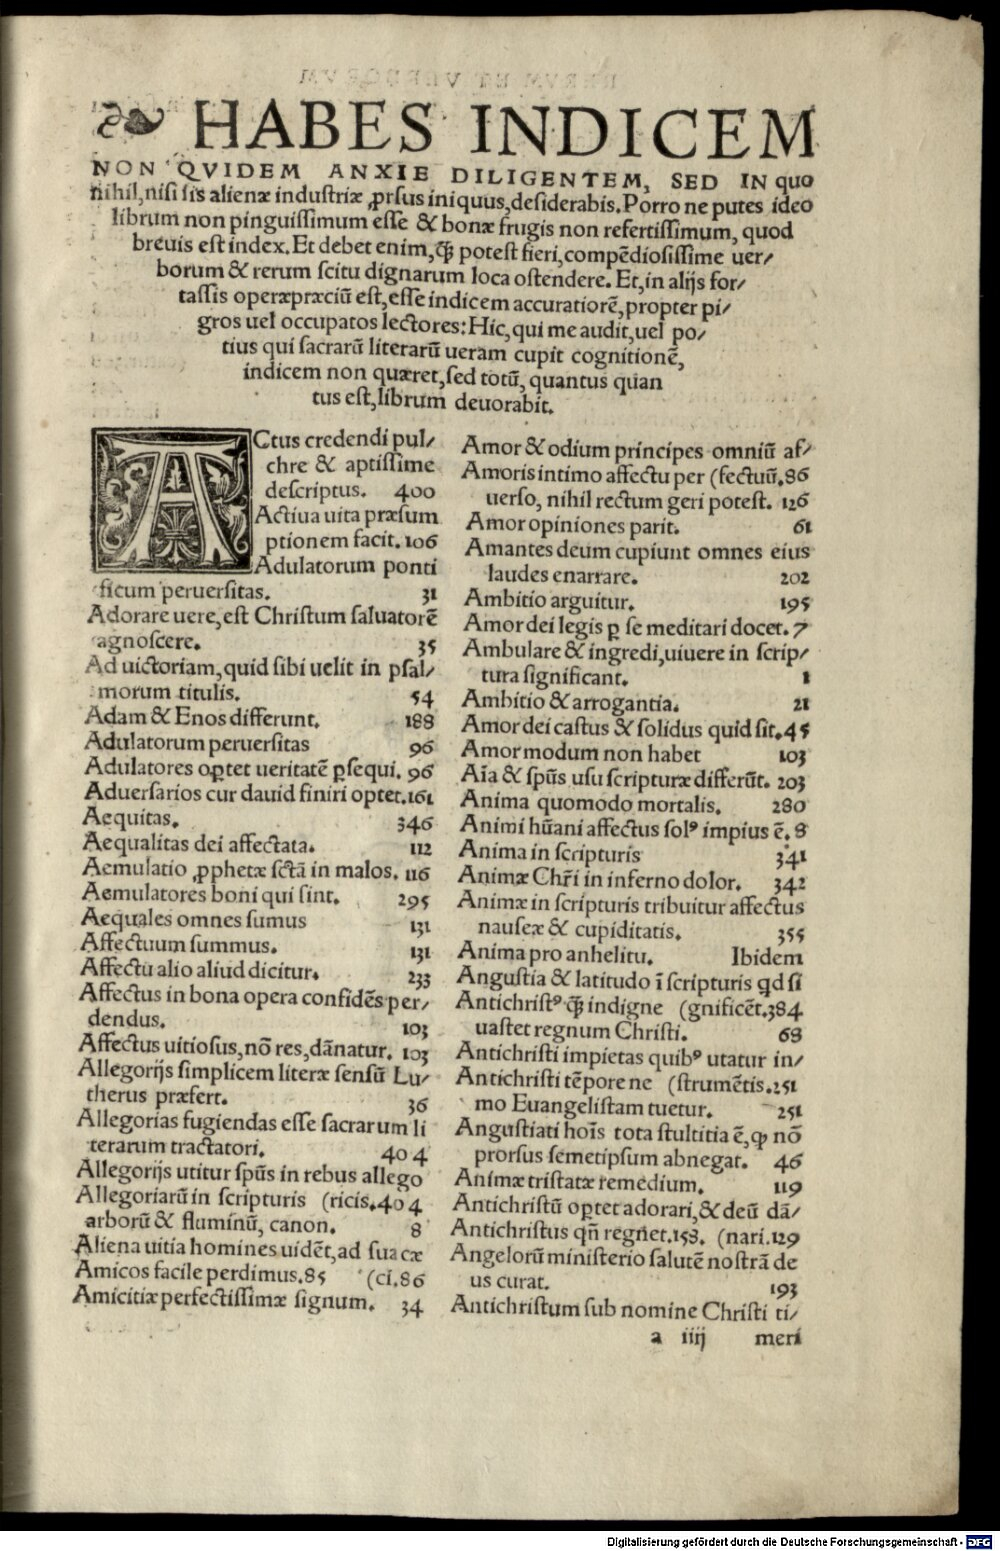 ❧ HABES INDICEM
NON QVIDEM ANXIE DILIGENTEM, SED IN quo
nihil, nisi sis alienæ industriæ ꝓrsus iniquus, desiderabis. Porro ne putes ideo
librum non pinguissimum esse & bonæ frugis non refertissimum, quod
breuis est index. Et debet enim, ꝙ̈ potest fieri, compēdiosissime uer/
borum & rerum scitu dignarum loca ostendere. Et, in alijs for/
tassis operæpræciū est, esse indicem accuratiorē, propter pi/
gros uel occupatos lectores: Hic, qui me audit, uel po/
tius qui sacrarū literarū ueram cupit cognitionē,
indicem non quæret, sed totū, quantus quan
tus est, librum deuorabit.
ACtus credendi pul/
chre & aptissime
descriptus. 400
Actiua uita præsum
ptionem facit. 106
Adulatorum ponti
ficum peruersitas. 31
Adorare uere, est Christum saluatorē
agnoscere. 35
Ad uictoriam, quid sibi uelit in psal/
morum titulis. 54
Adam & Enos differunt. 188
Adulatorum peruersitas 96
Adulatores oꝑtet ueritatē ꝑsequi. 96
Aduersarios cur dauid finiri optet. 161
Aequitas. 346
Aequalitas dei affectata. 112
Aemulatio ꝓphetæ sctā in malos. 116
Aemulatores boni qui sint. 295
Aequales omnes sumus 131
Affectuum summus. 131
Affectu alio aliud dicitur. 233
Affectus in bona opera confidēs per/
dendus. 103
Affectus uitiosus, nō res, dānatur. 103
Allegorijs simplicem literæ sensū Lu/
therus præfert. 36
Allegorias fugiendas esse sacrarum li
terarum tractatori. 404
Allegorijs utitur spūs in rebus allego
Allegoriarū in scripturis (ricis. 404
arborū & fluminū, canon. 8
Aliena uitia homines uidēt, ad sua cæ
Amicos facile perdimus. 85 (ci. 86
Amicitiæ perfectissimæ signum. 34
Amor & odium principes omniū af/
Amoris intimo affectu per (fectuū. 86
uerso, nihil rectum geri potest. 126
Amor opiniones parit. 61
Amantes deum cupiunt omnes eius
laudes enarrare. 202
Ambitio arguitur. 195
Amor dei legis ꝑ se meditari docet. 7
Ambulare & ingredi, uiuere in scrip/
tura significant. 1
Ambitio & arrogantia. 21
Amor dei castus & solidus quid sit. 45
Amor modum non habet 103
Aīa & spūs usu scripturæ differūt. 203
Anima quomodo mortalis. 280
Animi hūani affectus solꝰ impius ē. 8
Anima in scripturis 341
Animæ Chr̄i in inferno dolor. 342
Animæ in scripturis tribuitur affectus
nauseæ & cupiditatis. 355
Anima pro anhelitu. Ibidem
Angustia & latitudo ī scripturis qd si
Antichristꝰ ꝙ̈ indigne (gnificēt. 384
uastet regnum Christi. 68
Antichristi impietas quibꝰ utatur in/
Antichristi tēpore ne (strumētis. 251
mo Euangelistam tuetur. 251
Angustiati hoīs tota stultitia ē, ꝙ nō
prorsus semetipsum abnegat. 46
Animæ tristatæ remedium. 119
Antichristū oꝑtet adorari, & deū dā/
Antichristus qn̄ regnet. 158. (nari. 129
Angelorū ministerio salutē nostrā de
us curat. 193
Antichristum sub nomine Christi ti/
a iiij meri
Digitalisierung gefördert durch die Deutsche Forschungsgemeinschaft - DFG